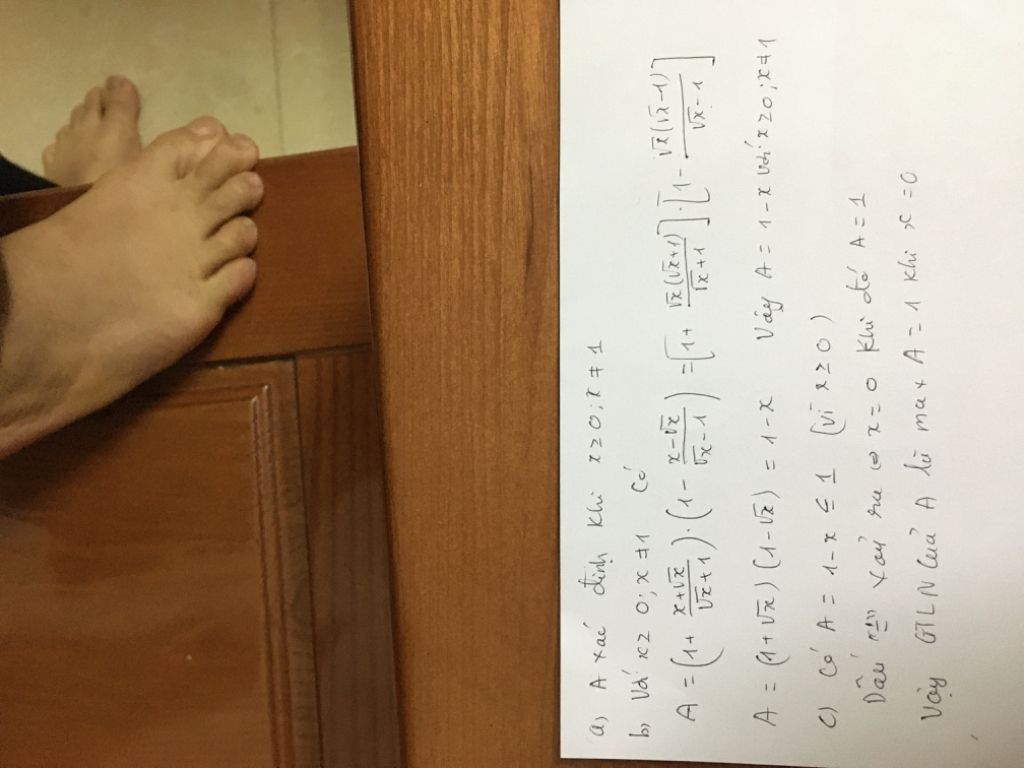 a) A xác định khi x ≥ 0; x ≠ 1
b) Với x ≥ 0; x ≠ 1 Có
A = (1 + (x+√x)/(√x+1)) · (1 - (x-√x)/(√x-1)) = [1 + √x(√x+1)/(√x+1)] · [1 - √x(√x-1)/(√x-1)]
A = (1+√x)(1-√x) = 1-x Vậy A = 1-x với x ≥ 0; x ≠ 1
c) Có A = 1-x ≤ 1 (vì x ≥ 0)
Dấu "=" xảy ra ⇔ x = 0 khi đó A = 1
Vậy GTLN của A là max A = 1 khi x = 0